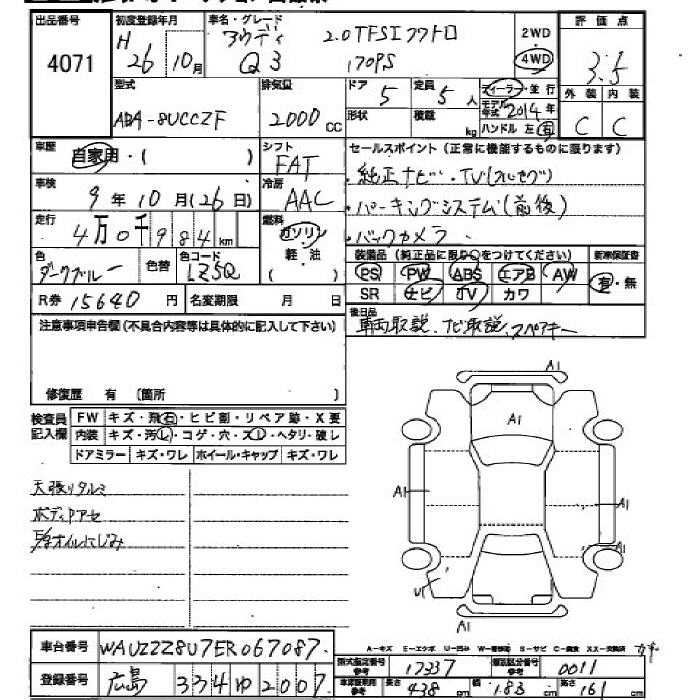 出品番号 初度登録年月 車名・グレード 評価点
4071 H 26 10月 アウディ 2.0TFSIクワトロ 2WD 3.5
Q3 170PS 4WD
型式 排気量 ドア 5 定員 5人 ディーラー・並行 外装 内装
ABA-8UCCZF 2000cc 形状 積載 kg モデル年式 2014年 C C
ハンドル 左 右
車歴 自家用・( ) シフト FAT セールスポイント(正常に機能するものに限ります)
車検 9年10月(26日) 冷房 AAC ・純正ナビ・TV(フルセグ)
走行 4万0千984km 燃料 ガソリン ・パーキングシステム(前後)
軽・油 ( ) ・バックカメラ
色 ダークブルー 色替 色コード LZ5Q 装備品(純正品に限り○をつけてください) 新車保証書
PS PW ABS エアB AW 有・無
R券 15640円 名変期限 月 日 SR ナビ TV カワ
注意事項申告欄(不具合内容等は具体的に記入して下さい) 後日品 車両取説、ナビ取説、スペアキー
修復歴 有 〔箇所 〕
検査員記入欄 FW キズ・飛石・ヒビ割・リペア跡・X要
内装 キズ・汚レ・コゲ・穴・ズレ・ヘタリ・破レ
ドアミラー キズ・ワレ ホイール・キャップ キズ・ワレ
天張りタルミ
ボディPアセ
オイルにじみ
A1
A1
A1
A1
A1
A1
U1
A1
車台番号 WAUZZZ8U7ER067087
A-キズ E-エクボ U-凹み W-補修跡 S-サビ C-腐食 XX-交換済
登録番号 広島 334 ゆ 2007
型式指定番号 参考 17337 類別区分番号 参考 0011
車庫証明用 参考 長さ 438cm 幅 183cm 高さ 161cm